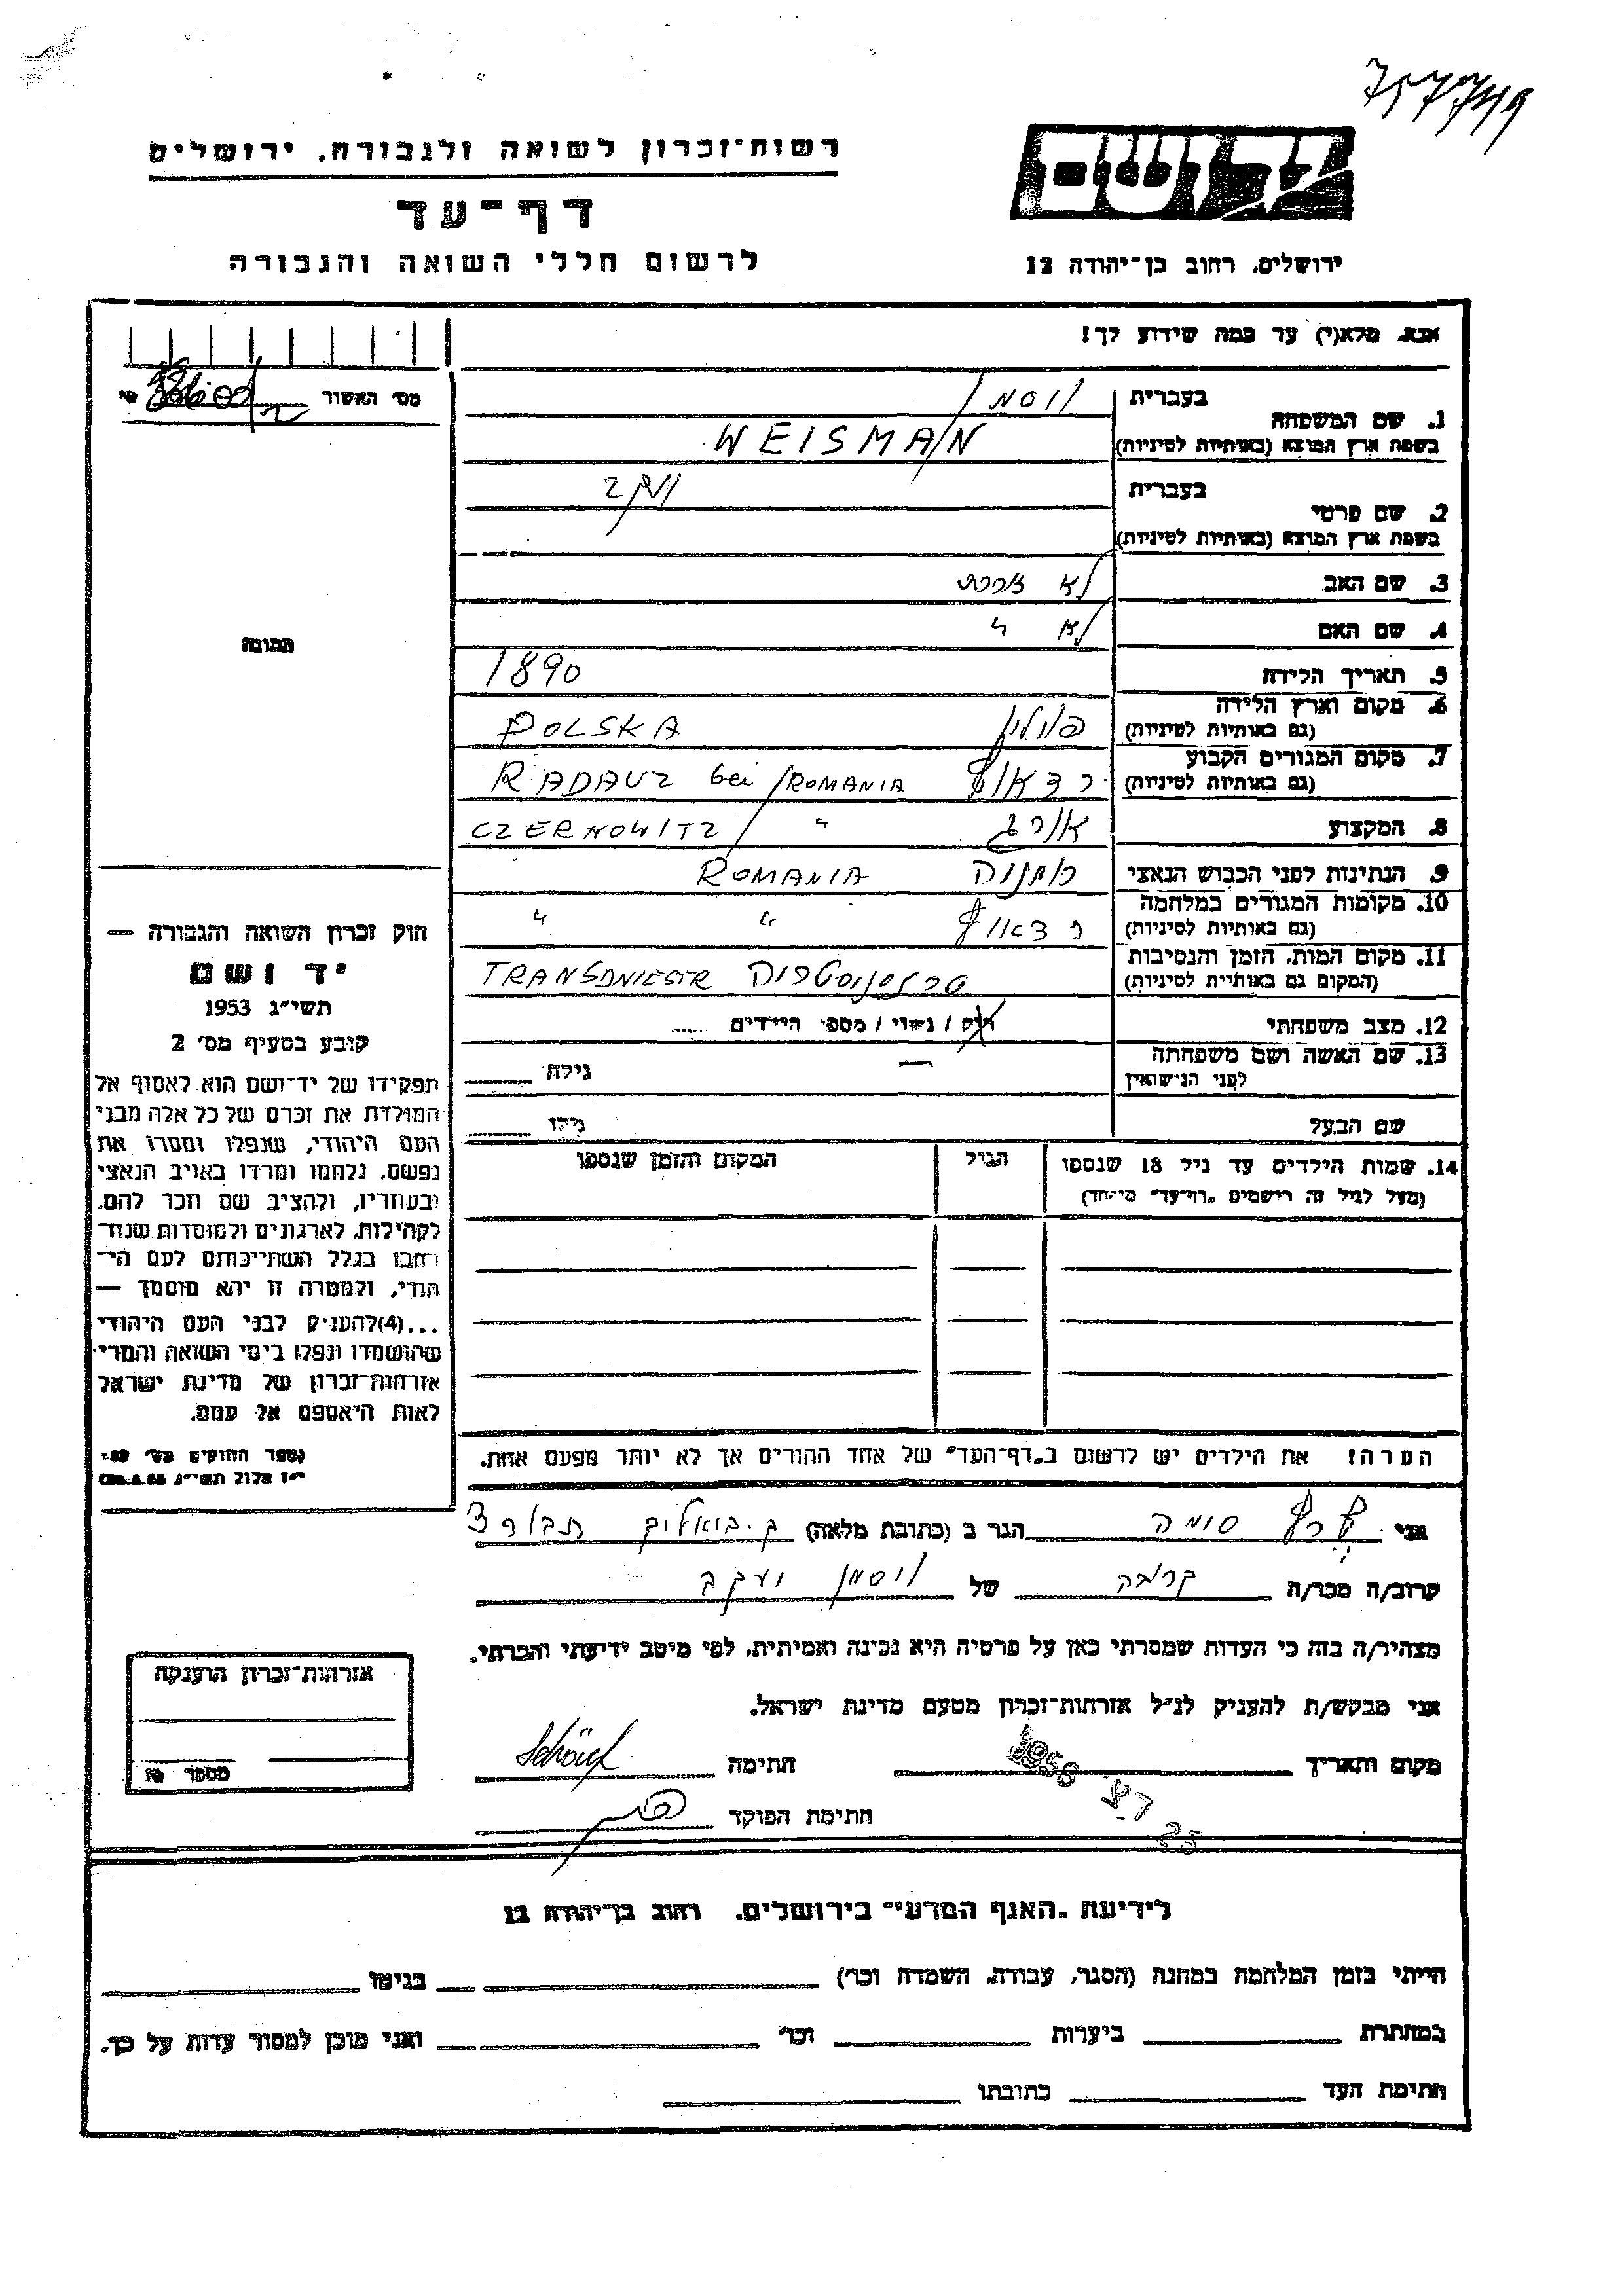 757749
רשות־זכרון לשואה ולגבורה, ירושלים
דף־עד
לרשום חללי השואה והגבורה
יד ושם
ירושלים, רחוב בן־יהודה 12
אנא, מלא(י) עד כמה שידוע לך!
מס' האשור
1. שם המשפחה
בעברית
ויסמן
בשפת ארץ המוצא (באותיות לטיניות)
WEISMAN
2. שם פרטי
בעברית
יעקב
בשפת ארץ המוצא (באותיות לטיניות)
3. שם האב
לא זוכרת
4. שם האם
לא "
תמונה
5. תאריך הלידה
1890
6. מקום וארץ הלידה
(גם באותיות לטיניות)
פולין POLSKA
7. מקום המגורים הקבוע
(גם באותיות לטיניות)
רדאוץ RADAUZ bei / ROMANIA
8. המקצוע
אורג " CZERNOWITZ
9. הנתינות לפני הכבוש הנאצי
רומניה ROMANIA
10. מקומות המגורים במלחמה
(גם באותיות לטיניות)
רדאוץ " "
11. מקום המות, הזמן והנסיבות
(המקום גם באותיות לטיניות)
TRANSDNIESTR
12. מצב משפחתי
רוק / נשוי / מספר הילדים
13. שם האשה ושם משפחתה
לפני הנישואין
—
גילה
שם הבעל
גילו
14. שמות הילדים עד גיל 18 שנספו
(מעל לגיל זה רושמים "דף־עד" מיוחד)
הגיל
המקום והזמן שנספו
חוק זכרון השואה והגבורה —
יד ושם
תשי"ג 1953
קובע בסעיף מס' 2
תפקידו של יד־ושם הוא לאסוף אל
המולדת את זכרם של כל אלה מבני
העם היהודי, שנפלו ומסרו את
נפשם, נלחמו ומרדו באויב הנאצי
ובעוזריו, ולהציב שם וזכר להם,
לקהילות, לארגונים ולמוסדות שנח־
רבו בגלל השתייכותם לעם הי־
הודי, ולמטרה זו יהא מוסמך —
...(4)להעניק לבני העם היהודי
שהושמדו ונפלו בימי השואה והמרי
אזרחות־זכרון של מדינת ישראל
לאות היאספם אל עמם.
(ספר החוקים מס' 132
י"ז אלול תשי"ג 28.8.53)
הערה! את הילדים יש לרשום ב"דף־העד" של אחד ההורים אך לא יותר מפעם אחת.
אני שרף סומה הגר ב (כתובת מלאה)
קרוב/ה מכר/ה קרובה של ויסמן יעקב
מצהיר/ה בזה כי העדות שמסרתי כאן על פרטיה היא נכונה ואמיתית, לפי מיטב ידיעתי והכרתי.
אני מבקש/ת להעניק לנ"ל אזרחות־זכרון מטעם מדינת ישראל.
מקום ותאריך 1956 חתימה
חתימת הפוקד
אזרחות־זכרון הוענקה
מספר
לידיעת "האגף המדעי" בירושלים, רחוב בן־יהודה 12
הייתי בזמן המלחמה במחנה (הסגר, עבודה, השמדה וכו') בגיטו
במחתרת ביערות וכו' ואני מוכן למסור עדות על כך.
חתימת העד כתובתו